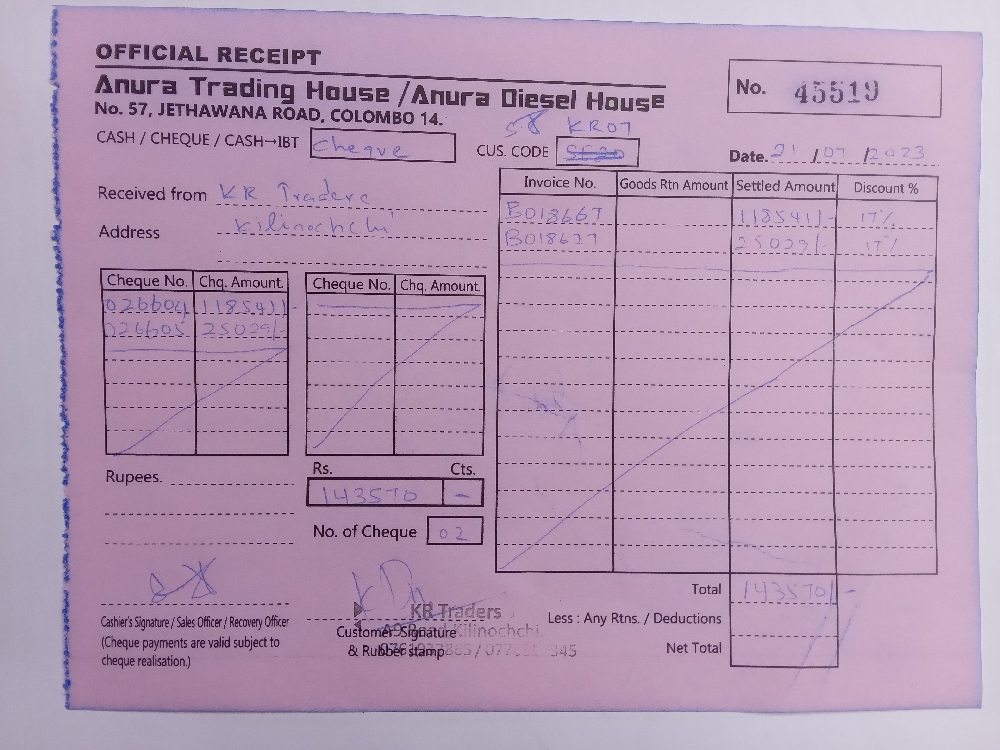 OFFICIAL RECEIPT
Anura Trading House / Anura Diesel House
No. 57, JETHAWANA ROAD, COLOMBO 14.
No. 45519
CASH / CHEQUE / CASH→IBT Cheque
KR07
CUS. CODE
Date. 21 / 07 / 2023
Received from KR Traders
Address Kilinochchi
Invoice No. Goods Rtn Amount Settled Amount Discount %
B018667 118541/- 17%
B018627 25029/- 17%
Cheque No. Chq. Amount. Cheque No. Chq. Amount.
026604 118541/-
026605 25029/-
Rupees.
Rs. Cts.
143570 -
No. of Cheque 02
Total 143570/-
Less : Any Rtns. / Deductions
Net Total
Cashier's Signature / Sales Officer / Recovery Officer
(Cheque payments are valid subject to
cheque realisation.)
KR Traders
Customer Signature
Road, Kilinochchi.
& Rubber stamp